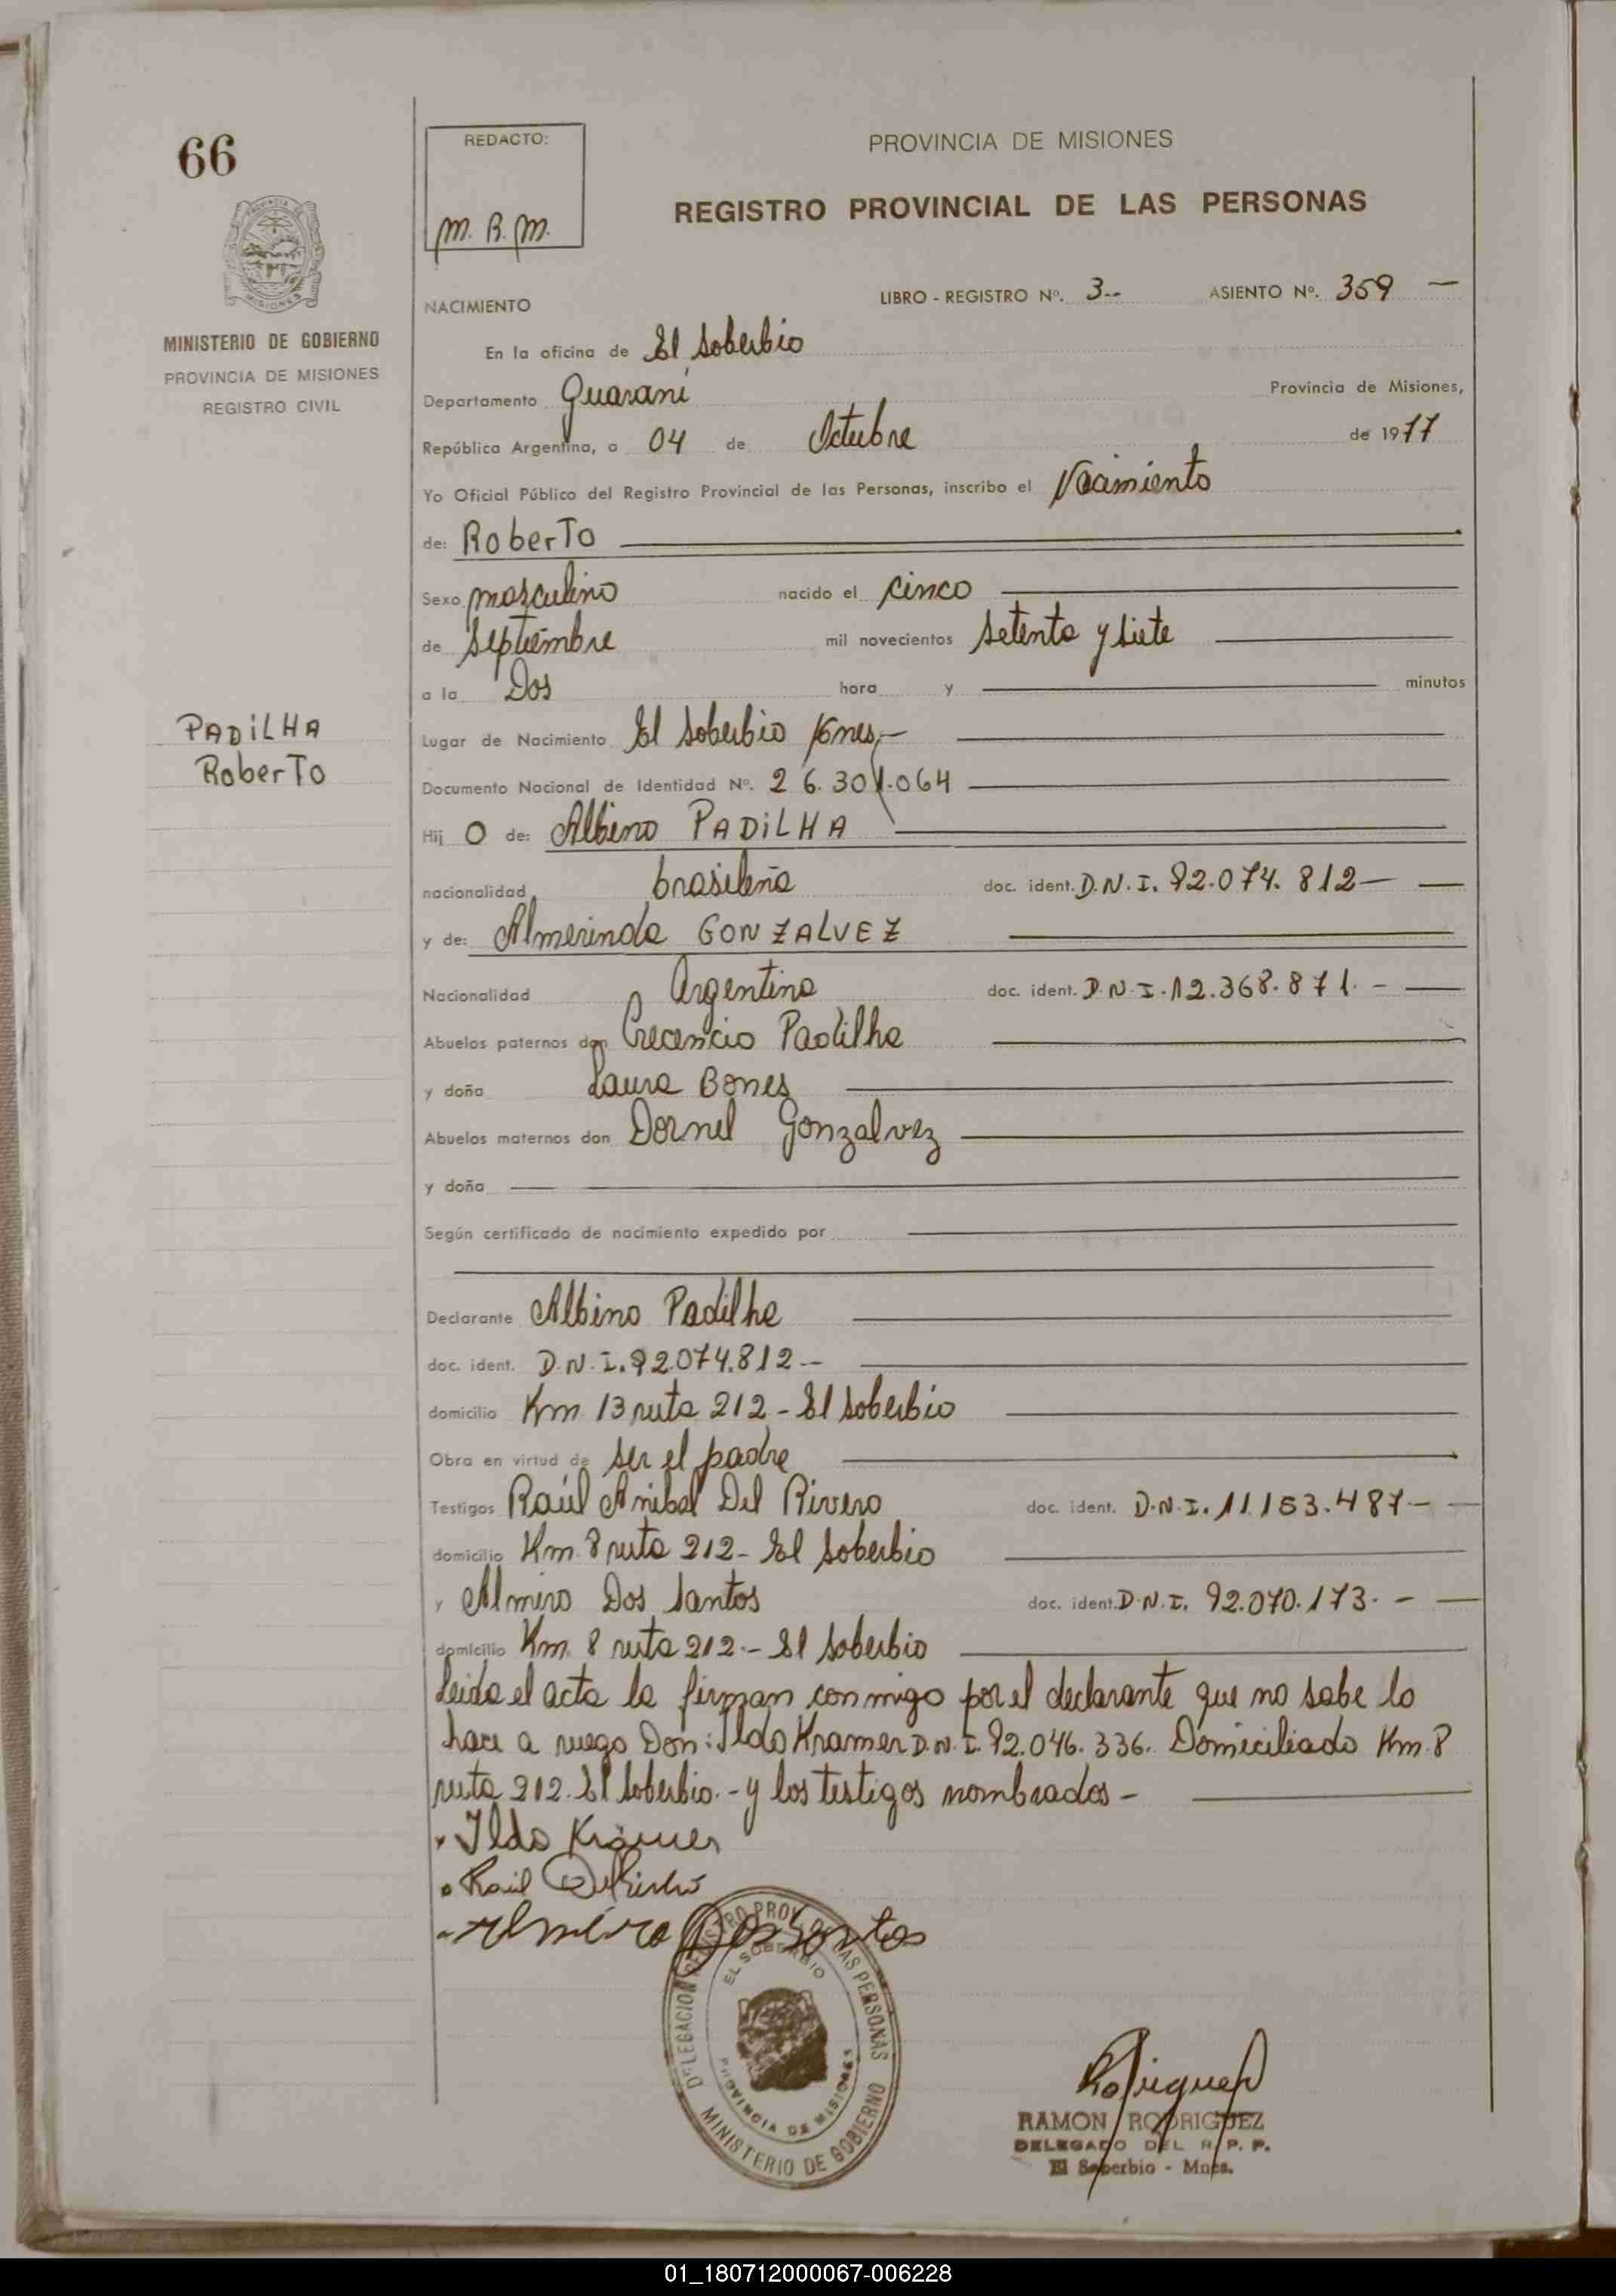 66
REDACTO:
M. B. M.
PROVINCIA DE MISIONES
REGISTRO PROVINCIAL DE LAS PERSONAS
PROVINCIA DE
MISIONES
MINISTERIO DE GOBIERNO
PROVINCIA DE MISIONES
REGISTRO CIVIL
NACIMIENTO
LIBRO - REGISTRO Nº. 3-- ASIENTO Nº. 359 —
En la oficina de El Soberbio
Departamento Guaraní Provincia de Misiones,
República Argentina, a 04 de Octubre de 1977
Yo Oficial Público del Registro Provincial de las Personas, inscribo el Nacimiento
de: Roberto
Sexo masculino nacido el cinco
de Septiembre mil novecientos setenta y siete
a la Dos hora y minutos
PADILHA
Roberto
Lugar de Nacimiento El Soberbio Mnes,-
Documento Nacional de Identidad Nº. 26.301.064
Hij O de: Albino PADILHA
nacionalidad brasileña doc. ident. D.N.I. 92.074.812—
y de: Almerinda GONZALVEZ
Nacionalidad Argentina doc. ident. D.N.I. 12.368.871.-
Abuelos paternos don Crecencio Padilha
y doña Laura Bones
Abuelos maternos don Dornel Gonzalvez
y doña
Según certificado de nacimiento expedido por
Declarante Albino Padilha
doc. ident. D.N.I. 92.074.812--
domicilio Km 13 ruta 212 - El Soberbio
Obra en virtud de ser el padre
Testigos Raúl Anibal Del Rivero doc. ident. D.N.I. 11.153.487-
domicilio Km. 8 ruta 212- El Soberbio
y Almiro Dos Santos doc. ident. D.N.I. 92.070.173. -
domicilio Km. 8 ruta 212.- El Soberbio
Leida el acta la firman conmigo por el declarante que no sabe lo
hace a ruego Don: Ildo Kramer D.N.I. 92.046.336. Domiciliado Km. 8
ruta 212. El Soberbio.- y los testigos nombrados-
Ildo Krämer
Raúl Del Rivero
Almiro Dos Santos
DELEGACION REGISTRO PROV. DE LAS PERSONAS
EL SOBERBIO
PROVINCIA DE MISIONES
MINISTERIO DE GOBIERNO
Rodriguez
RAMON RODRIGUEZ
DELEGADO DEL R. P. P.
El Soberbio - Mnes.
01_180712000067-006228